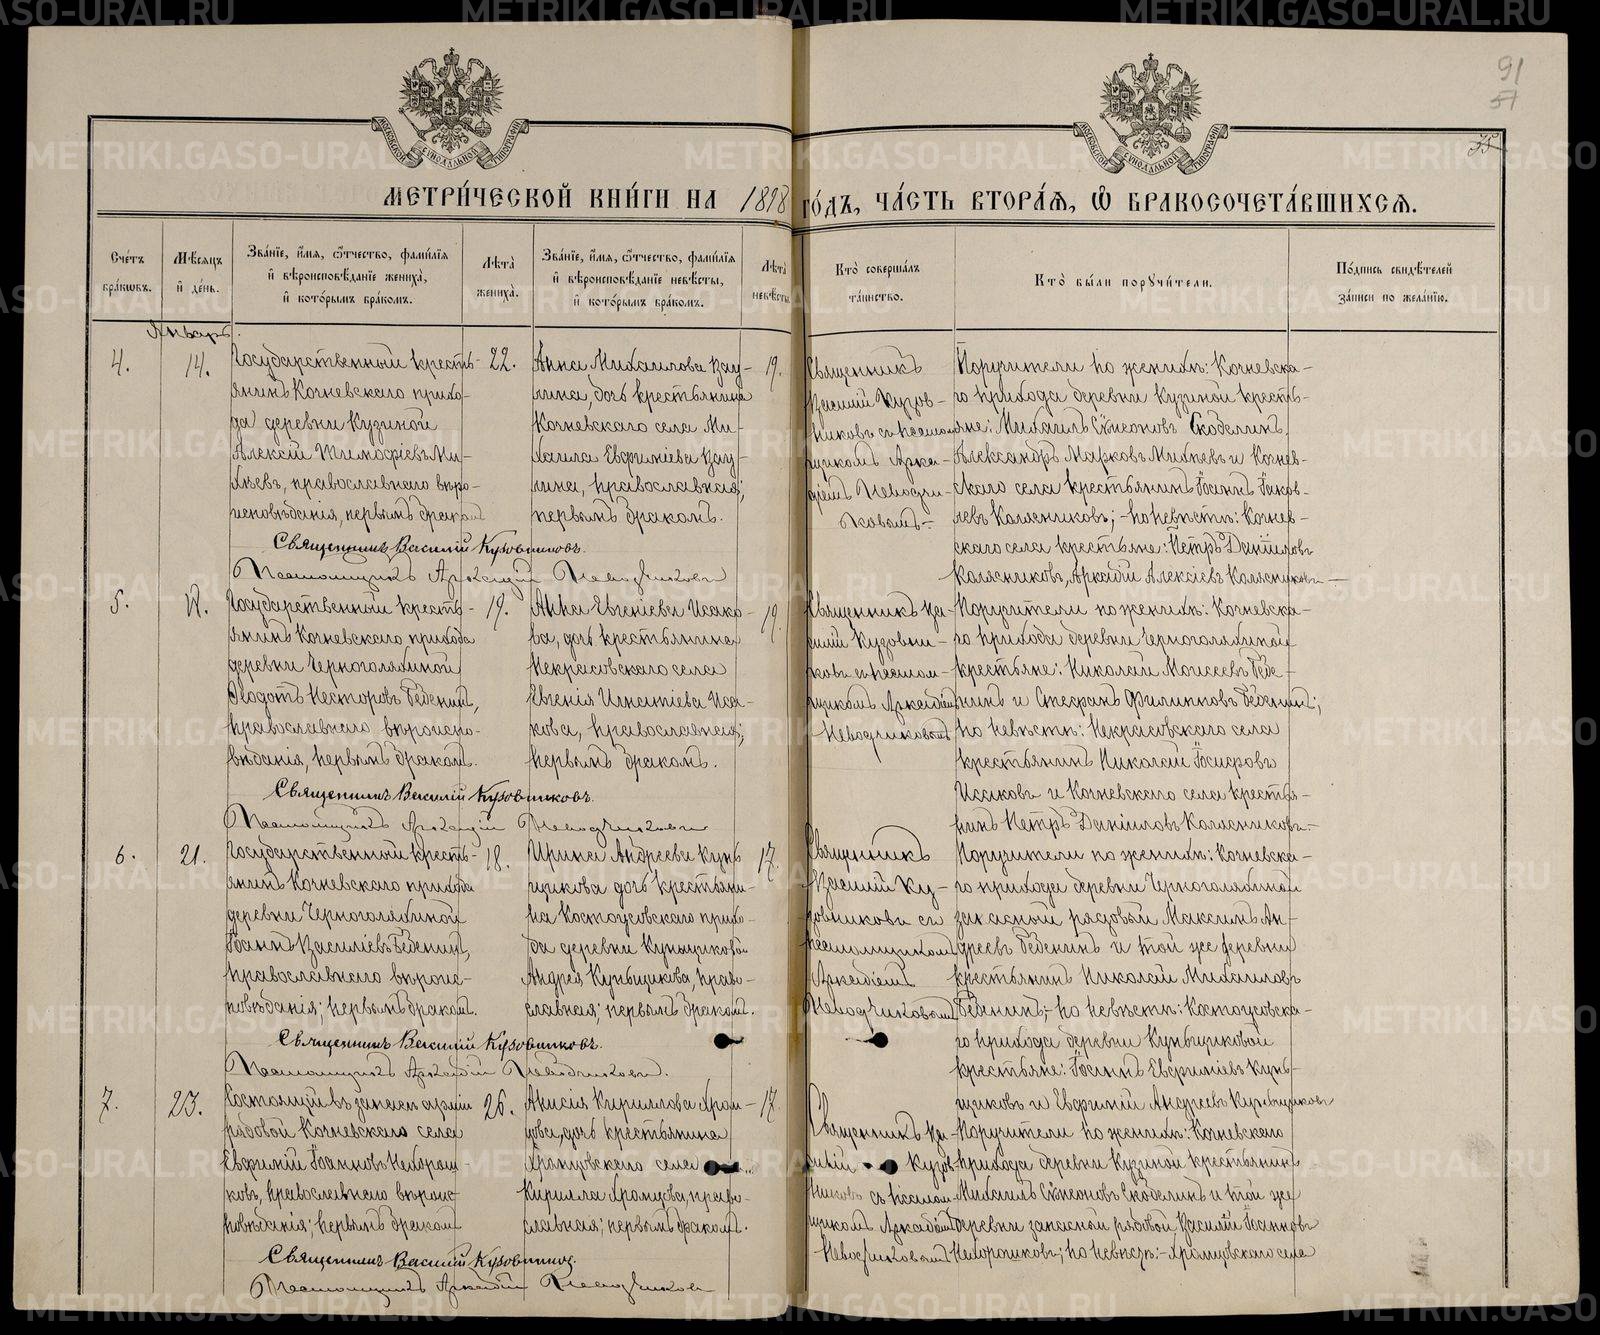 91
57
35
МОСКОВСКОЙ СѴНОДАЛЬНОЙ ТИПОГРАФІИ
МОСКОВСКОЙ СѴНОДАЛЬНОЙ ТИПОГРАФІИ
МЕТРИ́ЧЕСКОЙ КНИ́ГИ НА 1898 ГО́ДЪ, ЧА́СТЬ ВТОРА́Я, Ѽ БРАКОСОЧЕТА́ВШИХСЯ.
Сче́тъ бра́кѡвъ.
Мѣ́сяцъ и҆ де́нь.
Зва́нїе, и҆́мя, ѻ҆́тчество, фами́лїя и҆ вѣроисповѣ́данїе жениха̀, и҆ кото́рымъ бра́комъ.
Лѣ́та жениха̀.
Зва́нїе, и҆́мя, ѻ҆́тчество, фами́лїя и҆ вѣроисповѣ́данїе невѣ́сты, и҆ кото́рымъ бра́комъ.
Лѣ́та невѣ́сты.
Кто̀ соверша́лъ та́инство.
Кто̀ бы́ли порꙋчи́тели.
По́дпись свидѣ́телей за́писи по жела́нїю.
Январь.
4.
14.
Государственный кресть-
янинъ Кочневскаго прихо-
да деревни Кузиной
Алексій Тимофіевъ Ми-
хѣевъ, православнаго вѣро-
исповѣданія, первымъ бракомъ
22.
Анна Михаилова Вау-
лина, дочь крестьянина
Кочневскаго села Ми-
хаила Евфиміева Вау-
лина, православная;
первымъ бракомъ.
19.
Священникъ
Василій Кузов-
никовъ съ псалом-
щикомъ Арка-
діемъ Неводчи-
ковымъ.-
Поручители по женихѣ: Кочневска-
го прихода деревни Кузиной кресть-
яне: Михаилъ Сѵмеоновъ Скобелинъ,
Александръ Марковъ Михѣевъ и Кочнев-
скаго села крестьянинъ Іоаннъ Іаков-
левъ Колясниковъ; - по невѣстѣ: Кочнев-
скаго села крестьяне: Петръ Даніиловъ
Колясниковъ, Аркадій Алексіевъ Колясниковъ
Священникъ Василій Кузовниковъ.
Псаломщикъ Аркадій Неводчиковъ
5.
19.
Анна Евгеніева Исако-
ва, дочь крестьянина
Некрасовскаго села
Евгенія Игнатіева Иса-
кова, православная;
первымъ бракомъ.
19.
Государственный кресть-
янинъ Кочневскаго прихода
деревни Черноголяхиной
Ѳеодотъ Несторовъ Бѣденинъ,
православнаго вѣроиспо-
вѣданія, первымъ бракомъ.
Священникъ Ва-
силій Кузовни-
ковъ съ псалом-
щикомъ Аркадіемъ
Неводчиковымъ
Поручители по женихѣ: Кочневска-
го прихода деревни Черноголяхиной
крестьяне: Николай Моисеевъ Бѣде-
нинъ и Стефанъ Филипповъ Бѣденинъ;
по невѣстѣ: Некрасовскаго села
крестьянинъ Николай Іосифовъ
Исаковъ и Кочневскаго села кресть-
нинъ Петръ Даніиловъ Колясниковъ.-
Священникъ Василій Кузовниковъ.
Псаломщикъ Аркадій Неводчиковъ
6.
21.
Государственный кресть-
янинъ Кочневскаго прихода
деревни Черноголяхиной
Іоаннъ Василіевъ Бѣденинъ,
православнаго вѣроис-
повѣданія; первымъ бракомъ.
18.
Ирина Андреева Кунь-
щикова дочь крестьяни-
на Костоусовскаго прихо-
да деревни Куньщиковой
Андрея Куньщикова, право-
славная; первымъ бракомъ.
17.
Священникъ
Василій Ку-
зовниковъ съ
псаломщикомъ
Аркадіемъ
Неводчиковымъ
Поручители по женихѣ: Кочневска-
го прихода деревни Черноголяхиной
запасной рядовой Максимъ Ан-
дреевъ Бѣденинъ и той же деревни
крестьянинъ Николай Михаиловъ
Бѣденинъ; - по невѣстѣ: Костоусовска-
го прихода деревни Куньщиковой
крестьяне: Іоаннъ Евфиміевъ Кунь-
щиковъ и Евфимій Андреевъ Куньщиковъ
Священникъ Василій Кузовниковъ.
Псаломщикъ Аркадій Неводчиковъ.
7.
23.
Состоящій въ запасѣ арміи
рядовой Кочневскаго села
Евфимій Іоанновъ Нехорош-
ковъ, православнаго вѣроис-
повѣданія; первымъ бракомъ
26.
Анисія Кириллова Хром-
цова, дочь крестьянина
Хромцовскаго села
Кирилла Хромцова, право-
славная; первымъ бракомъ.
17.
Священникъ Ва-
силій Кузов-
никовъ съ псалом-
щикомъ Аркадіемъ
Неводчиковымъ
Поручители по женихѣ: Кочневскаго
прихода деревни Кузиной крестьянинъ
Михаилъ Сѵмеоновъ Скобелинъ и той же
деревни запасной рядовой Василій Іоанновъ
Нехорошковъ; по невѣстѣ: - Хромцовскаго села
Священникъ Василій Кузовниковъ.
Псаломщикъ Аркадій Неводчиковъ
METRIKI.GASO-URAL.RU